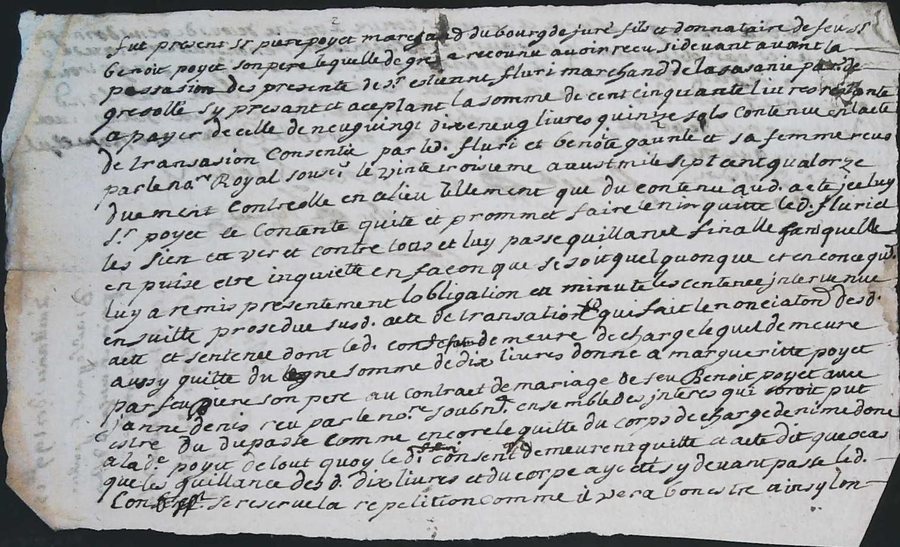 fut present sr piere poyet marchand du bourg de juré fils et donnataire de feu sr
benoit poyet son pere lequelle de gré a reconnu avoir recu sidevant avant la
passasion des presente de sr estienne fluri marchand de la
gresolle sy presant et aceptant la somme de cent cinquante livres restante
a payer de celle de neuf vingt dixeneuf livres quinze sols contenue en lacte
de transasion consentie par led. fluri et benoite et sa femme recu
par le nore Royal sousé le vinte troisieme aoust mile sept cent quatorze
duement controlle en ce lieu tellement que du contenu aud. acte icelluy
sr poyet ce contente quite et prommet faire tenir quitte led. fluri et
les sien en ver et contre tous et luy passe quittance finalle sans quelle
en puise etre inquiette en facon que se soit quelquonque et en ce que
luy a remis presentement lobligation en minute les centence intervenue
en suitte prosedue susd. acte de transation qui fait lenonciaton desd.
actt et sentence dont led. demeure decharge lequel demeure
aussy quitte du somme de dix livres donné a margueritte poyet
par feu piere son pere au contrat de mariage de feu Benoit poyet avec
janne denis recu par le nore soubné ensemble des interes qui oroit put
estre du du passé comme encore le quitte du corps de charge de nime donné
a lad. poyet de tout quoy led. consent demeurent quitte et acte dit que ocas
que les quittance desd. dix livres et du corps aye etes sy devant passe led.
se reserve la repetition comme il vera bon estre ainsy lon-